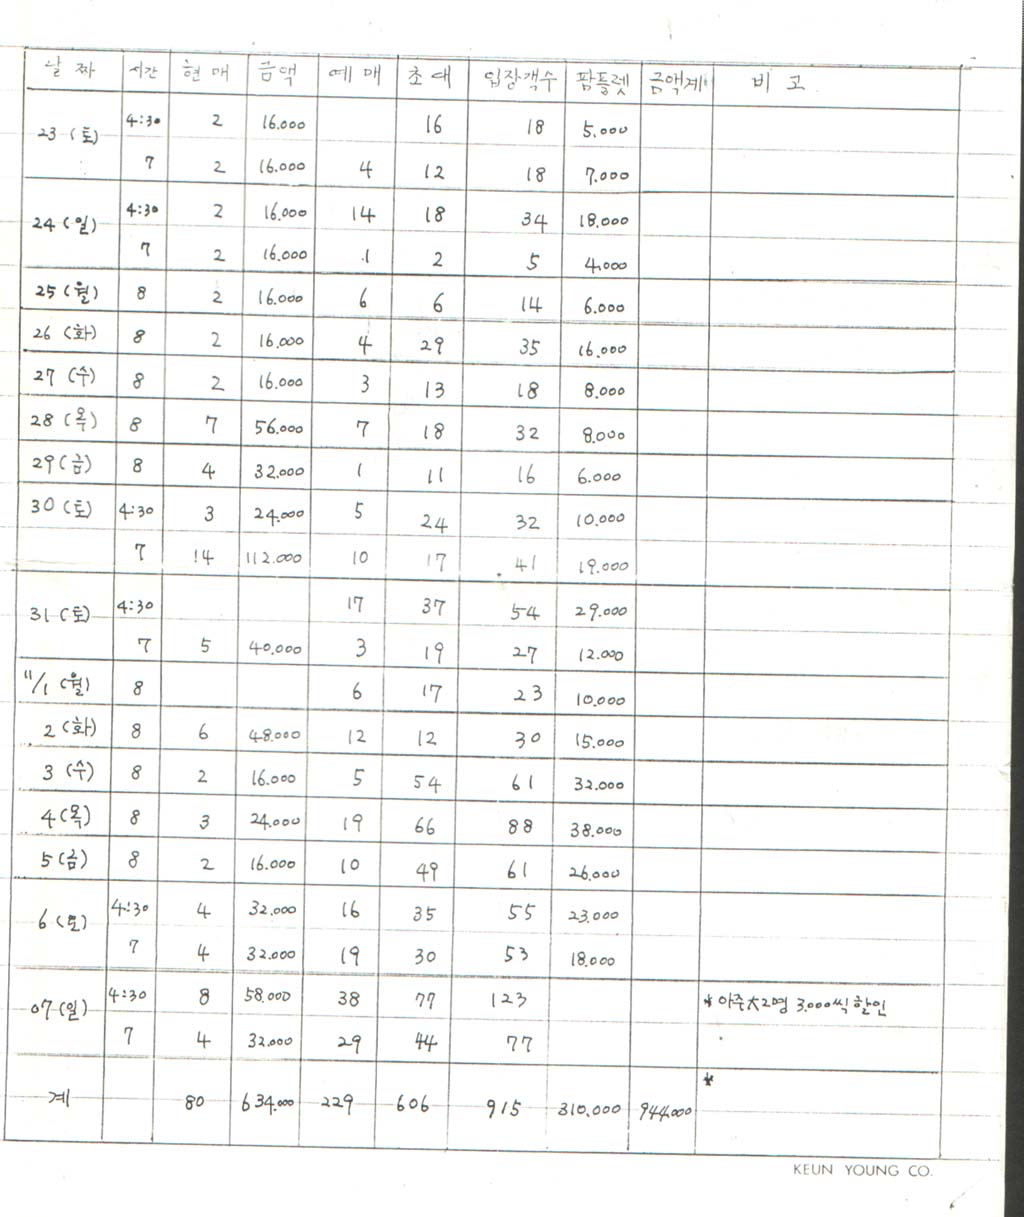 날짜 시간 현매 금액 예매 초대 입장객수 팜플렛 금액계 비고
23 (토) 4:30 2 16.000 16 18 5.000
7 2 16.000 4 12 18 7.000
24 (일) 4:30 2 16.000 14 18 34 18.000
7 2 16.000 1 2 5 4.000
25 (월) 8 2 16.000 6 6 14 6.000
26 (화) 8 2 16.000 4 29 35 16.000
27 (수) 8 2 16.000 3 13 18 8.000
28 (목) 8 7 56.000 7 18 32 8.000
29 (금) 8 4 32.000 1 11 16 6.000
30 (토) 4:30 3 24.000 5 24 32 10.000
7 14 112.000 10 17 41 19.000
31 (토) 4:30 17 37 54 29.000
7 5 40,000 3 19 27 12.000
11/1 (월) 8 6 17 23 10.000
2 (화) 8 6 48.000 12 12 30 15.000
3 (수) 8 2 16.000 5 54 61 32.000
4 (목) 8 3 24.000 19 66 88 38.000
5 (금) 8 2 16.000 10 49 61 26.000
6 (토) 4:30 4 32.000 16 35 55 23.000
7 4 32.000 19 30 53 18.000
07 (일) 4:30 8 58.000 38 77 123 * 아주大2명 3.000씩 할인
7 4 32.000 29 44 77
*
계 80 634.000 229 606 915 310.000 944.000
KEUN YOUNG CO.